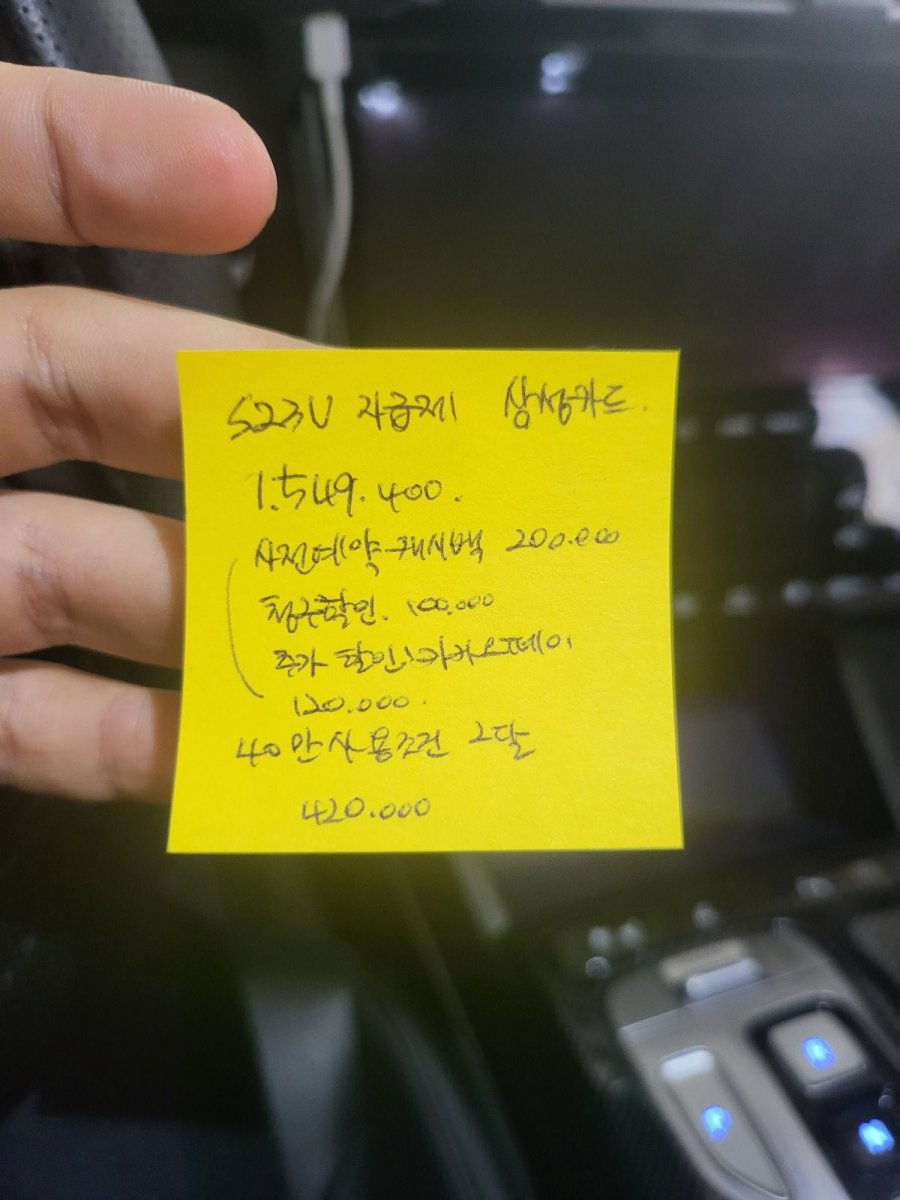 S23U 자급제 삼성카드.
1.549.400.
사전예약캐시백 200.000
청구할인. 100.000
추가 할인 카카오페이
120.000.
40만 사용조건 2달
420.000